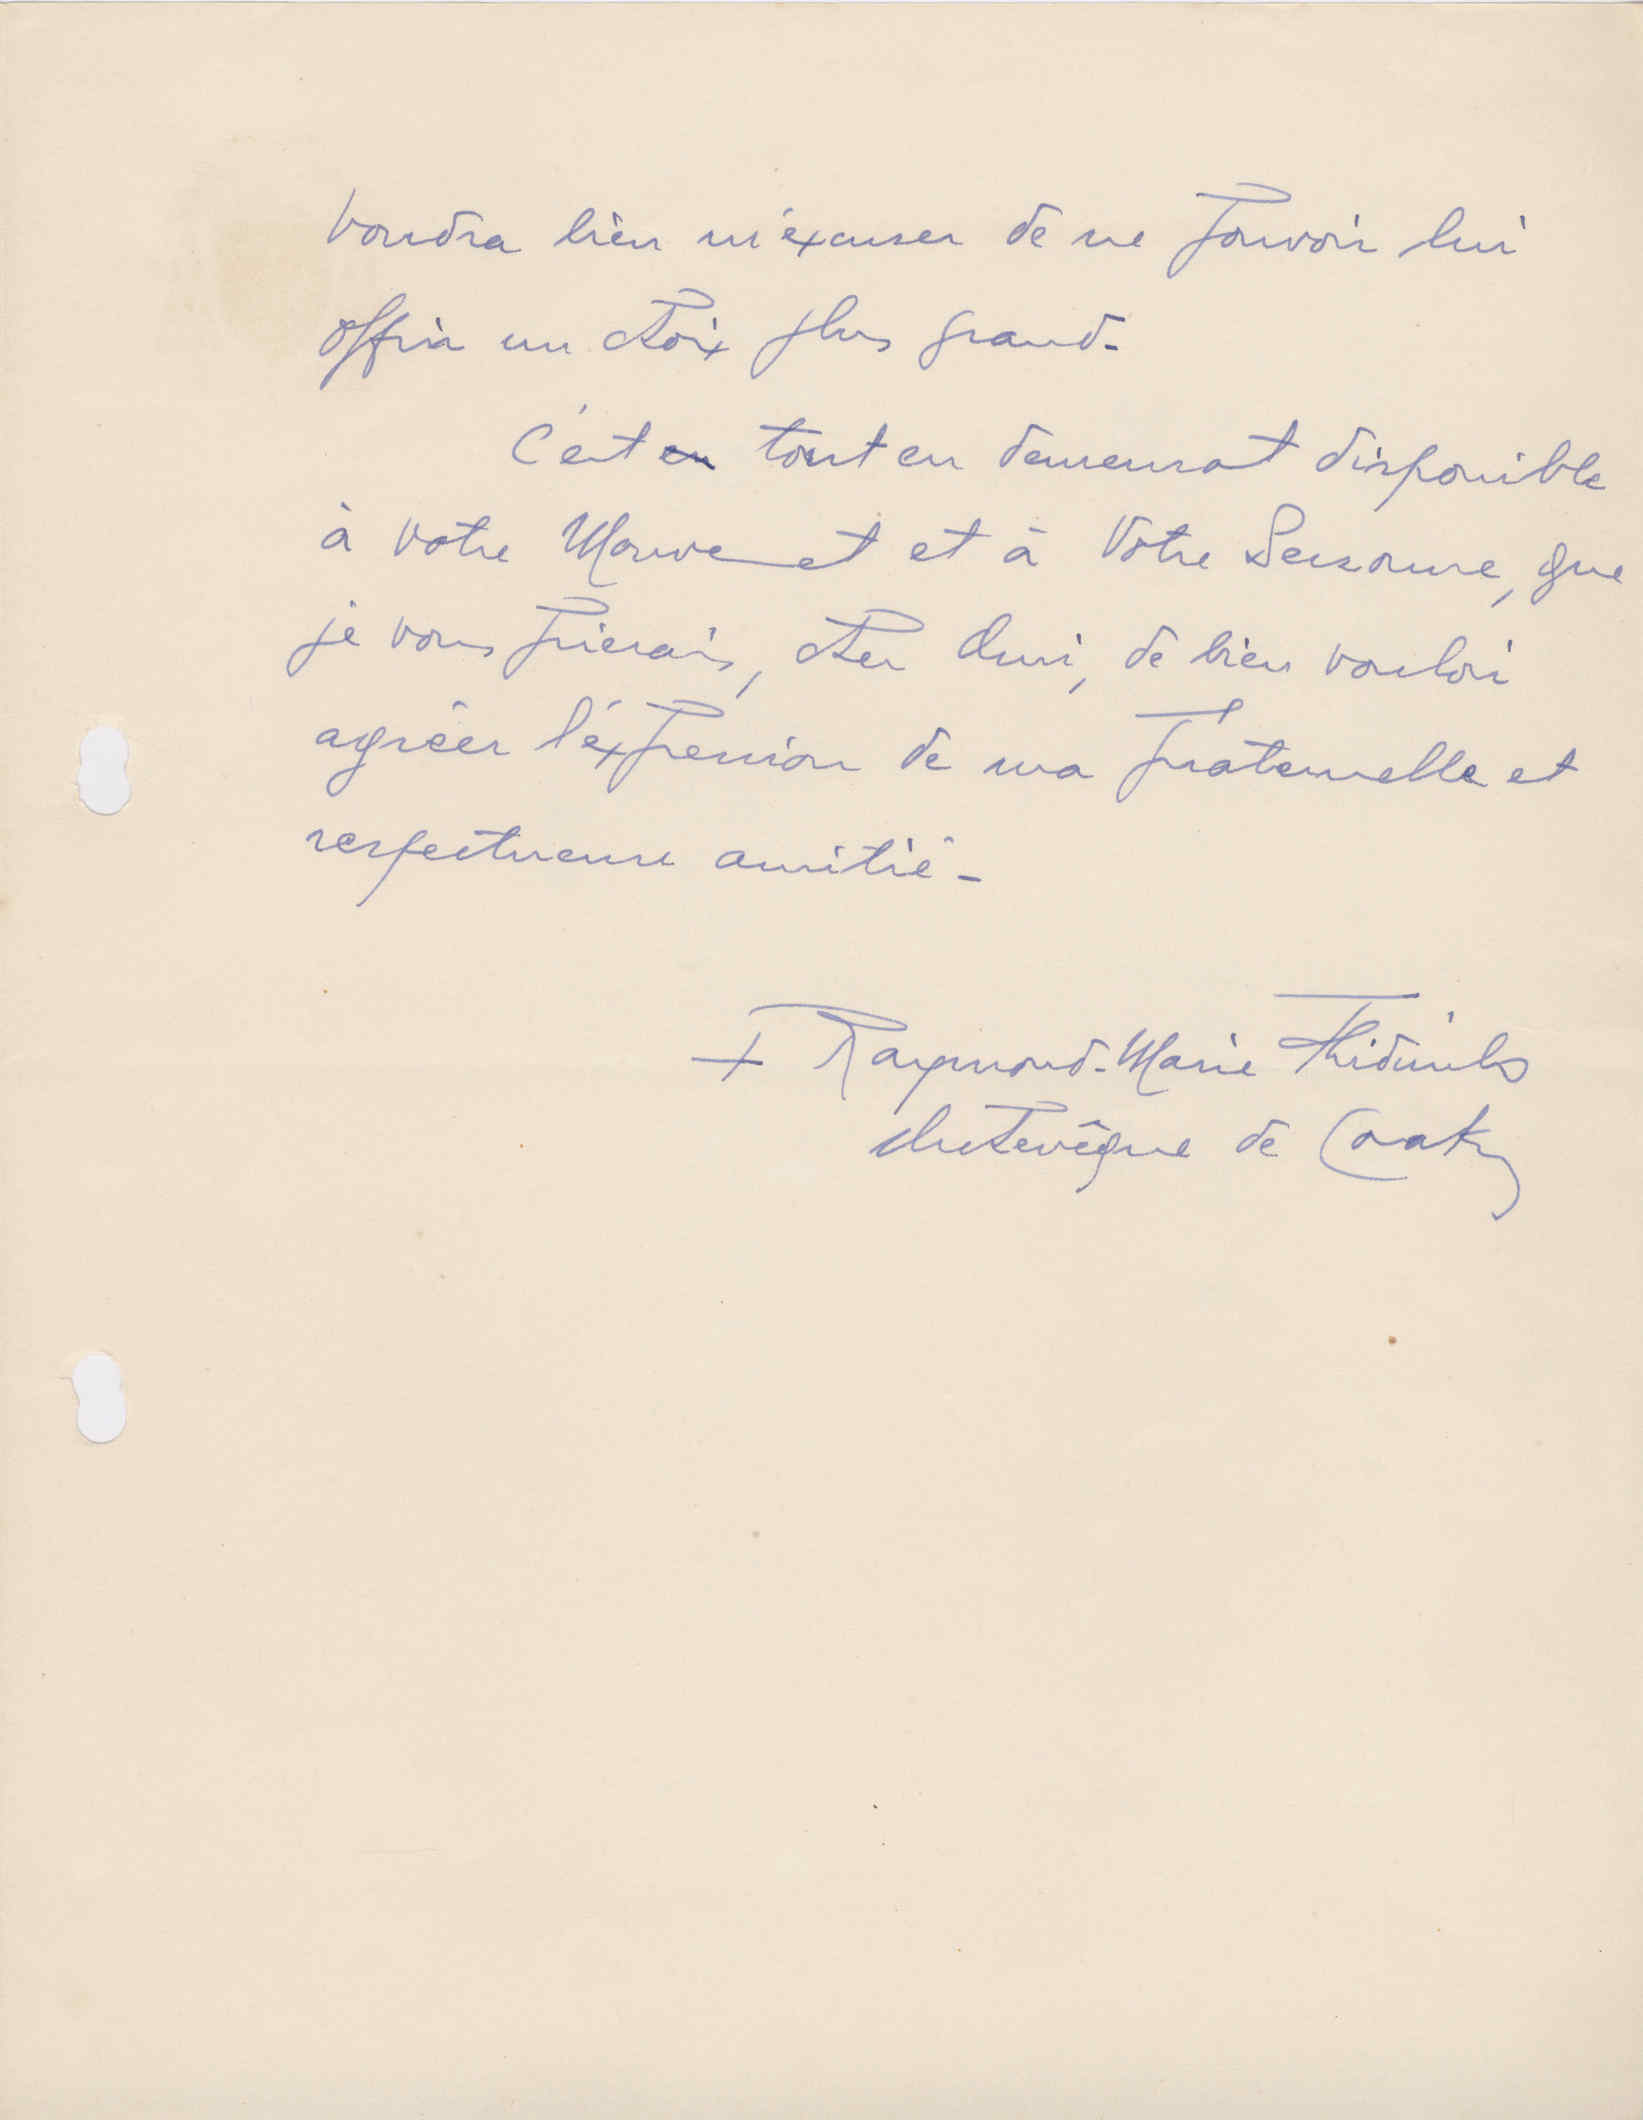 voudra bien m'excuser de ne pouvoir lui
offrir un choix plus grand.
C'est en tout en demeurant disponible
à votre Mouvement et à Votre Personne, que
je vous prierais, cher Ami, de bien vouloir
agréer l'expression de ma fraternelle et
respectueuse amitié -
+ Raymond-Marie Tchidimbo
Archevêque de Conakry